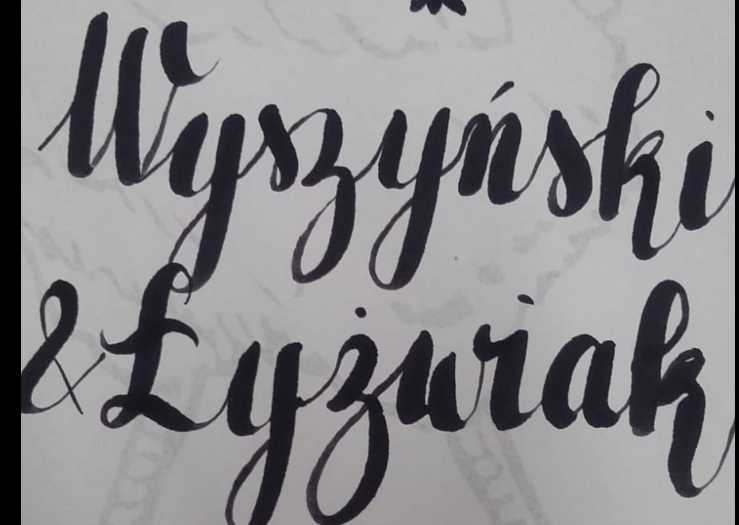 Wyszyński
& Łyżwiak